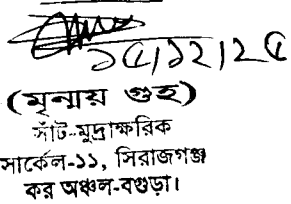 ১৫/১২/২৫
(মৃন্ময় গুহ)
সাঁট-মুদ্রাক্ষরিক
সার্কেল-১১, সিরাজগঞ্জ
কর অঞ্চল-বগুড়া।